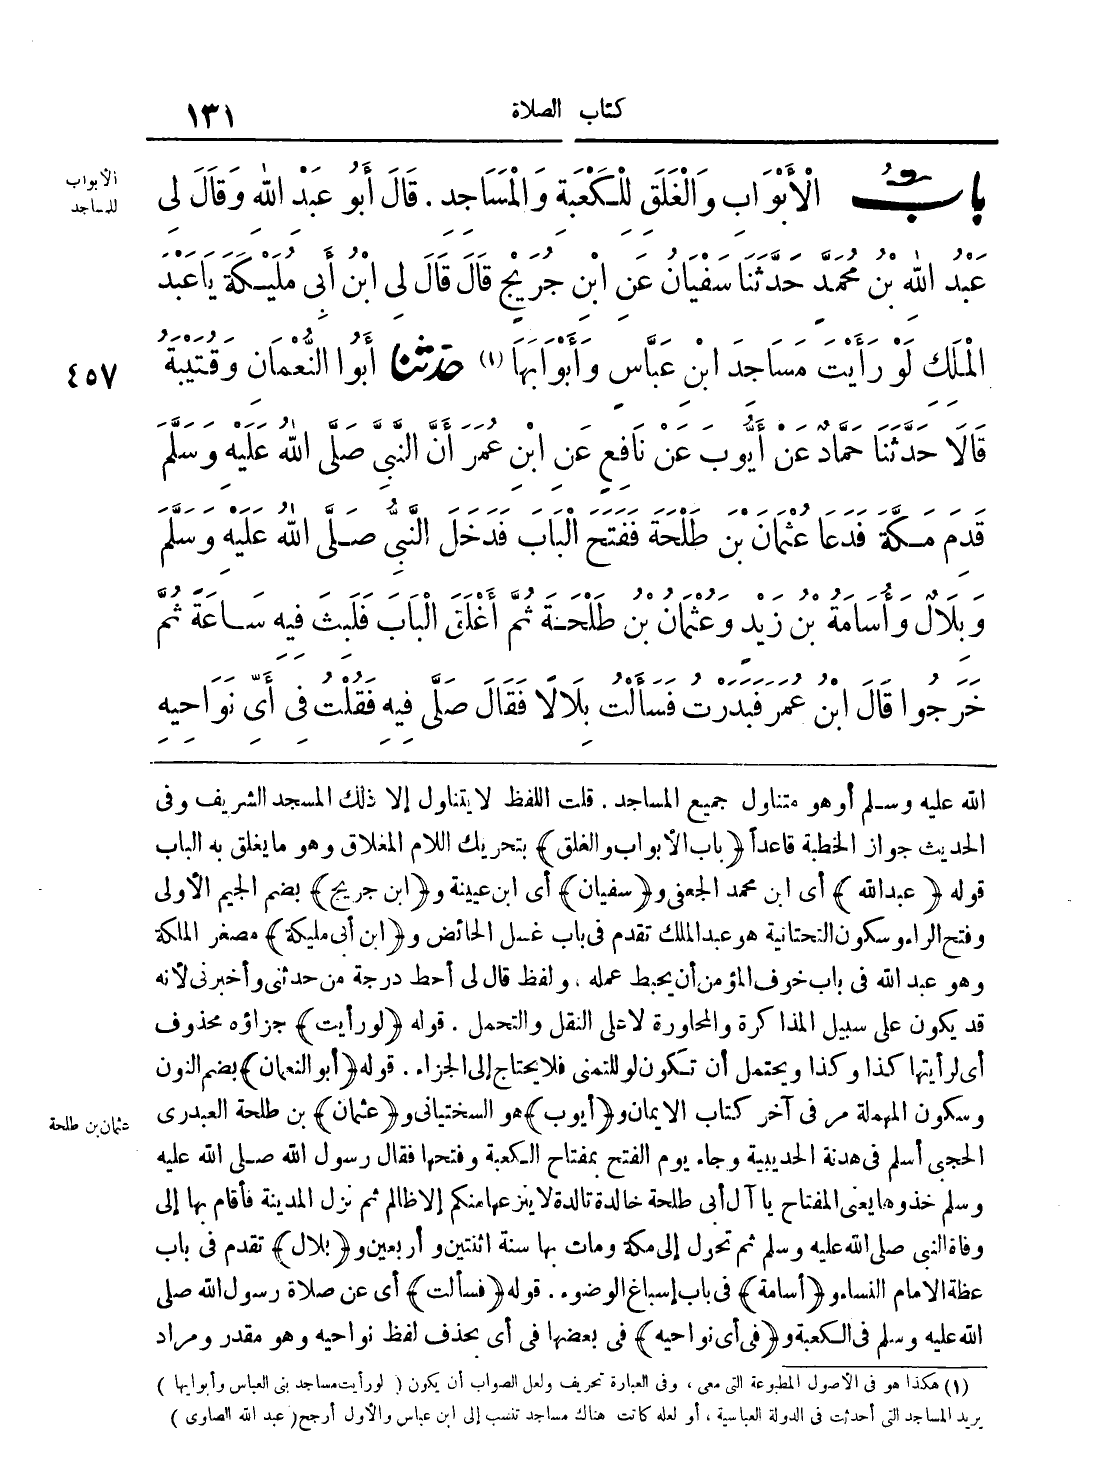 كتاب الصلاة
١٣١
الأبواب
للمساجد
بابُ الْأَبْوَابِ وَالْغَلَقِ لِلْكَعْبَةِ وَالْمَسَاجِدِ . قَالَ أَبُو عَبْدِ اللهِ وَقَالَ لِي
عَبْدُ اللهِ بْنُ مُحَمَّدٍ حَدَّثَنَا سُفْيَانُ عَنِ ابْنِ جُرَيْجٍ قَالَ قَالَ لِي ابْنُ أَبِي مُلَيْكَةَ يَا عَبْدَ
الْمَلِكِ لَوْ رَأَيْتَ مَسَاجِدَ ابْنِ عَبَّاسٍ وَأَبْوَابَهَا (١) حَدَّثَنَا أَبُوا النُّعْمَانِ وَقُتَيْبَةُ
٤٥٧
قَالَا حَدَّثَنَا حَمَّادٌ عَنْ أَيُّوبَ عَنْ نَافِعٍ عَنِ ابْنِ عُمَرَ أَنَّ النَّبِيَّ صَلَّى اللهُ عَلَيْهِ وَسَلَّمَ
قَدِمَ مَكَّةَ فَدَعَا عُثْمَانَ بْنَ طَلْحَةَ فَفَتَحَ الْبَابَ فَدَخَلَ النَّبِيُّ صَلَّى اللهُ عَلَيْهِ وَسَلَّمَ
وَبِلَالٌ وَأُسَامَةُ بْنُ زَيْدٍ وَعُثْمَانُ بْنُ طَلْحَةَ ثُمَّ أَغْلَقَ الْبَابَ فَلَبِثَ فِيهِ سَاعَةً ثُمَّ
خَرَجُوا قَالَ ابْنُ عُمَرَ فَبَدَرْتُ فَسَأَلْتُ بِلَالًا فَقَالَ صَلَّى فِيهِ فَقُلْتُ فِي أَيِّ نَوَاحِيهِ
الله عليه وسلم أو هو متناول جميع المساجد . قلت اللفظ لا يتناول إلا ذلك المسجد الشريف وفى
الحديث جواز الخطبة قاعداً ﴿باب الأبواب والغلق﴾ بتحريك اللام المغلاق وهو ما يغلق به الباب
قوله ﴿عبدالله﴾ أى ابن محمد الجعفى و﴿سفيان﴾ أى ابن عيينة و﴿ابن جريج﴾ بضم الجيم الأولى
وفتح الراء وسكون التحتانية هو عبد الملك تقدم فى باب غسل الحائض و﴿ابن أبى مليكة﴾ مصغر الملكة
وهو عبد الله فى باب خوف المؤمن أن يحبط عمله ، ولفظ قال لى أحط درجة من حدثنى وأخبرنى لأنه
قد يكون على سبيل المذاكرة والمحاورة لا على النقل والتحمل . قوله ﴿لو رأيت﴾ جزاؤه محذوف
أى لرأيتها كذا وكذا ويحتمل أن تكون لو للتمنى فلا يحتاج إلى الجزاء . قوله ﴿أبو النعمان﴾ بضم النون
وسكون المهملة مر فى آخر كتاب الايمان و﴿أيوب﴾ هو السختيانى و﴿عثمان﴾ بن طلحة العبدرى
عثمان بن طلحة
الحجبى أسلم فى هدنة الحديبية وجاء يوم الفتح بمفتاح الكعبة وفتحها فقال رسول الله صلى الله عليه
وسلم خذوها يعنى المفتاح يا آل أبى طلحة خالدة تالدة لا ينزعها منكم إلا ظالم ثم نزل المدينة فأقام بها إلى
وفاة النبى صلى الله عليه وسلم ثم تحول إلى مكة ومات بها سنة اثنتين وأربعين و﴿بلال﴾ تقدم فى باب
عظة الامام النساء و﴿أسامة﴾ فى باب إسباغ الوضوء . قوله ﴿فسألت﴾ أى عن صلاة رسول الله صلى
الله عليه وسلم فى الكعبة و﴿فى أى نواحيه﴾ فى بعضها فى أى بحذف لفظ نواحيه وهو مقدر ومراد
(١) هكذا هو فى الأصول المطبوعة التى معى ، وفى العبارة تحريف ولعل الصواب أن يكون ( لو رأيت مساجد بنى العباس وأبوابها )
يريد المساجد التى أحدثت فى الدولة العباسية ، أو لعله كانت هناك مساجد تنسب إلى ابن عباس والأول أرجح ( عبد الله الصاوى )